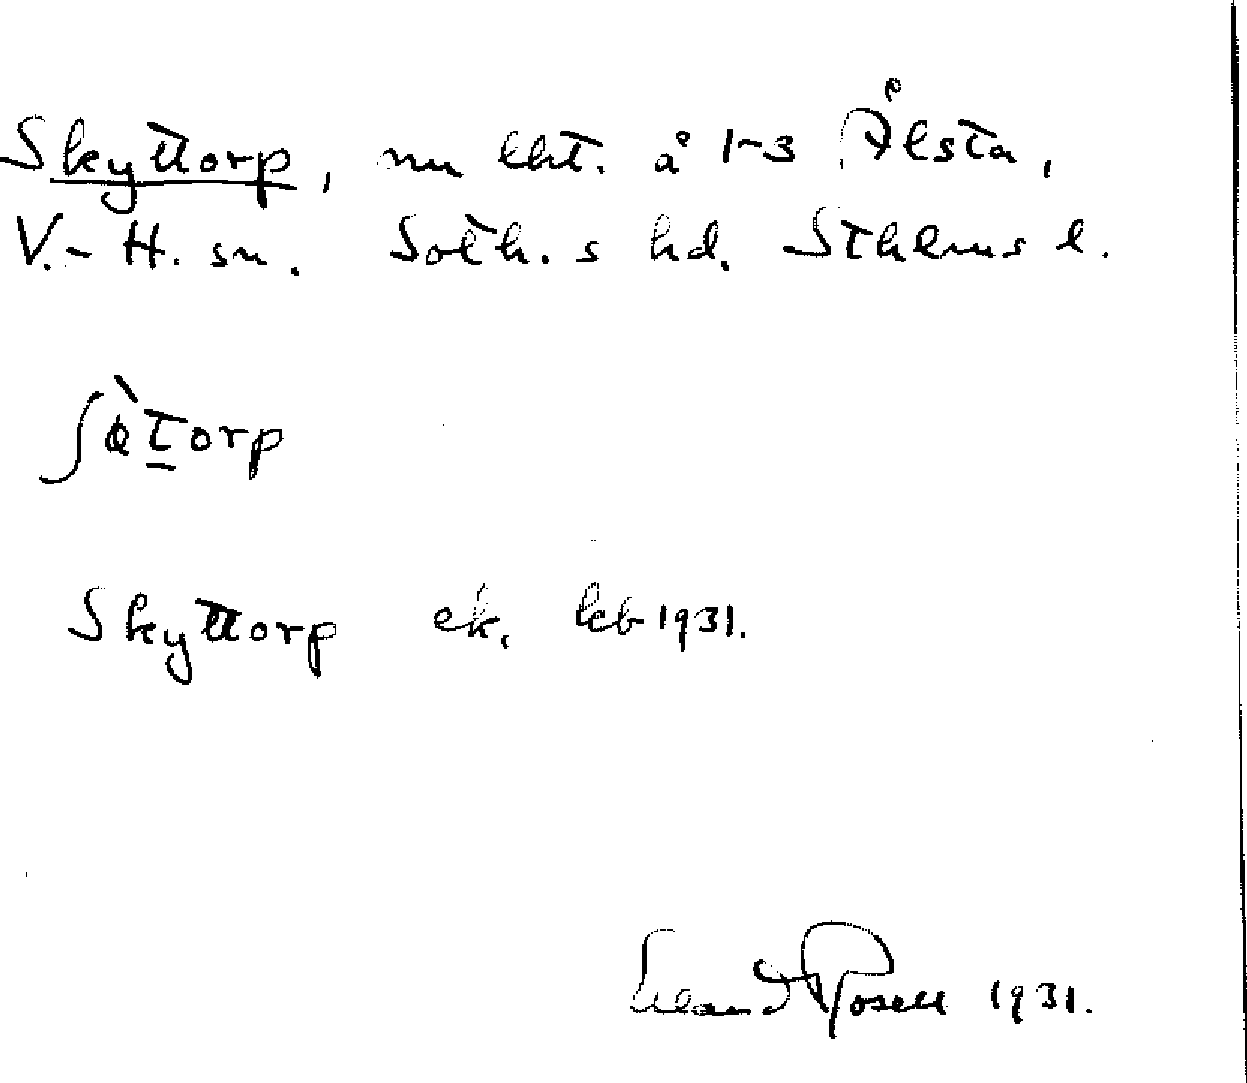 Skyttorp, nu lht. å 1-3 Ålsta,
V.-H. sn. Soth. s hd. Sthlms l.
ʃø̀torp
Skyttorp ek. kb 1931.
Erland Rosell 1931.